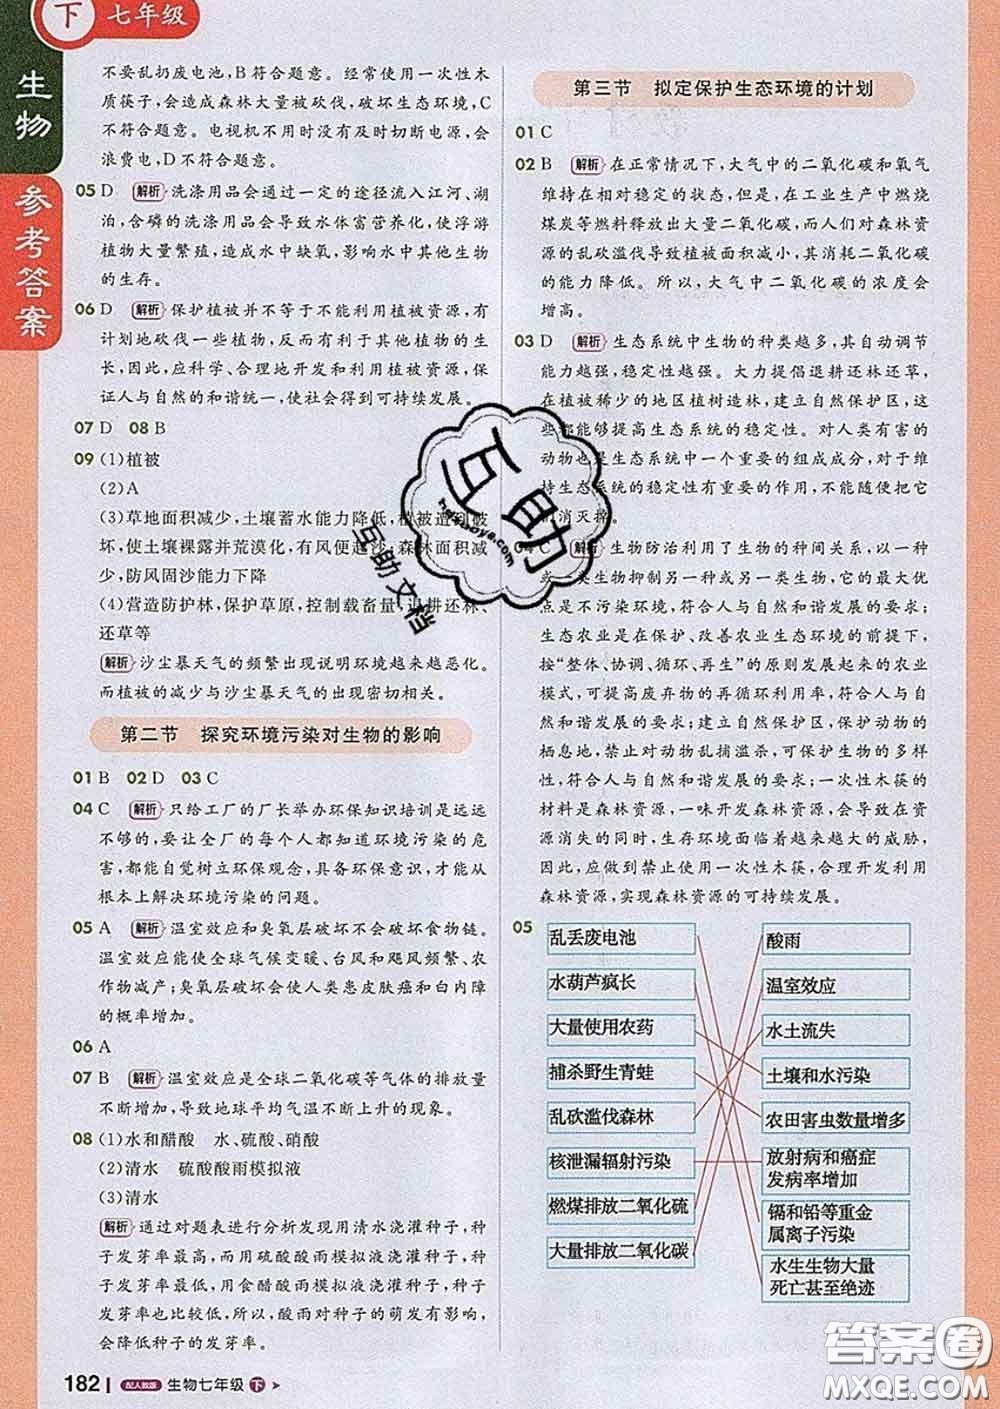 下 七年级
生物
参考答案
不要乱扔废电池,B符合题意。经常使用一次性木
质筷子,会造成森林大量被砍伐,破坏生态环境,C
不符合题意。电视机不用时没有及时切断电源,会
浪费电,D不符合题意。
05 D 解析 洗涤用品会通过一定的途径流入江河、湖
泊,含磷的洗涤用品会导致水体富营养化,使浮游
植物大量繁殖,造成水中缺氧,影响水中其他生物
的生存。
06 D 解析 保护植被并不等于不能利用植被资源,有
计划地砍伐一些植物,反而有利于其他植物的生
长,因此,应科学、合理地开发和利用植被资源,保
证人与自然的和谐统一,使社会得到可持续发展。
07 D 08 B
09 (1)植被
(2)A
(3)草地面积减少,土壤蓄水能力降低,植被遭到破
坏,使土壤裸露并荒漠化,有风便起沙;森林面积减
少,防风固沙能力下降
(4)营造防护林,保护草原,控制载畜量,退耕还林、
还草等
解析 沙尘暴天气的频繁出现说明环境越来越恶化。
而植被的减少与沙尘暴天气的出现密切相关。
第二节 探究环境污染对生物的影响
01 B 02 D 03 C
04 C 解析 只给工厂的厂长举办环保知识培训是远远
不够的,要让全厂的每个人都知道环境污染的危
害,都能自觉树立环保观念,具备环保意识,才能从
根本上解决环境污染的问题。
05 A 解析 温室效应和臭氧层破坏不会破坏食物链。
温室效应能使全球气候变暖、台风和飓风频繁、农
作物减产;臭氧层破坏会使人类患皮肤癌和白内障
的概率增加。
06 A
07 B 解析 温室效应是全球二氧化碳等气体的排放量
不断增加,导致地球平均气温不断上升的现象。
08 (1)水和醋酸 水、硫酸、硝酸
(2)清水 硫酸酸雨模拟液
(3)清水
解析 通过对题表进行分析发现用清水浇灌种子,种
子发芽率最高,而用硫酸酸雨模拟液浇灌种子,种子
发芽率最低,用食醋酸雨模拟液浇灌种子,种子
发芽率也比较低,所以,酸雨对种子的萌发有影响,
会降低种子的发芽率。
第三节 拟定保护生态环境的计划
01 C
02 B 解析 在正常情况下,大气中的二氧化碳和氧气
维持在相对稳定的状态,但是,在工业生产中燃烧
煤炭等燃料释放出大量二氧化碳,而人们对森林资
源的乱砍滥伐导致植被面积减小,其消耗二氧化碳
的能力降低。所以,大气中二氧化碳的浓度会
增高。
03 D 解析 生态系统中生物的种类越多,其自动调节
能力越强,稳定性越强。大力提倡退耕还林还草,
在植被稀少的地区植树造林,建立自然保护区,这
些都能够提高生态系统的稳定性。对人类有害的
动物也是生态系统中一个重要的组成成分,对于维
持生态系统的稳定性有重要的作用,不能随便把它
们消灭掉。
04 C 解析 生物防治利用了生物的种间关系,以一种
或一类生物抑制另一种或另一类生物,它的最大优
点是不污染环境,符合人与自然和谐发展的要求;
生态农业是在保护、改善农业生态环境的前提下,
按“整体、协调、循环、再生”的原则发展起来的农业
模式,可提高废弃物的再循环利用率,符合人与自
然和谐发展的要求;建立自然保护区,保护动物的
栖息地,禁止对动物乱捕滥杀,可保护生物的多样
性,符合人与自然和谐发展的要求;一次性木筷的
材料是森林资源,一味开发森林资源,会导致在自然
资源消失的同时,生存环境面临着越来越大的威胁,
因此,应做到禁止使用一次性木筷,合理开发利用
森林资源,实现森林资源的可持续发展。
05
乱丢废电池
水葫芦疯长
大量使用农药
捕杀野生青蛙
乱砍滥伐森林
核泄漏辐射污染
燃煤排放二氧化硫
大量排放二氧化碳
酸雨
温室效应
水土流失
土壤和水污染
农田害虫数量增多
放射病和癌症
发病率增加
镉和铅等重金
属离子污染
水生生物大量
死亡甚至绝迹
互助
互助文档
182 配人教版 生物七年级 下
答案圈
MXQE.COM